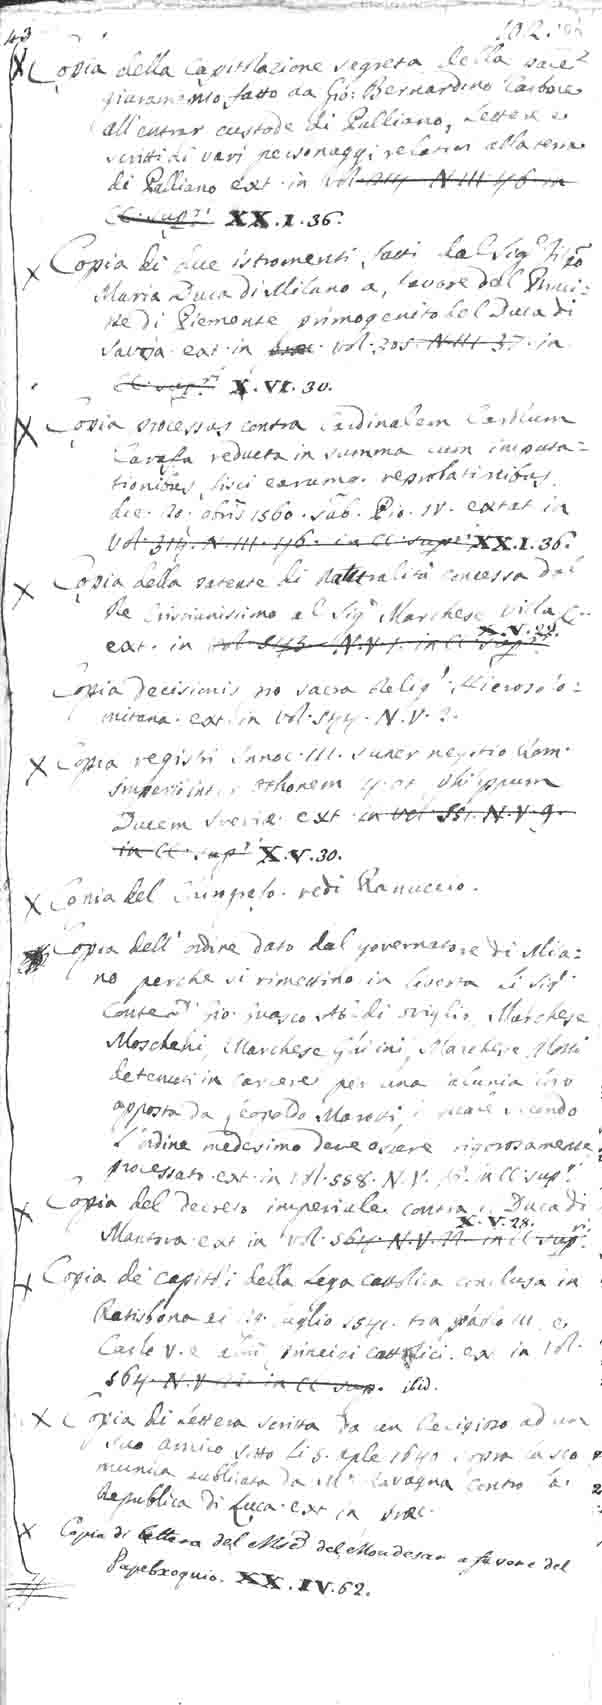 43 102.
Copia della Capitolazione segreta della pace
giuramento fatto da Gio: Bernardino Carbone
all'entrar custode di Palliano, lettere e
scritti di vari personaggi relativi alla terra
di Palliano ext. in Vol. 314 N. III. 46 in
CC. sup.ri XX.I.36.
Copia di due istromenti fatti dal Sig.r Filippo
Maria Duca di Milano a favore del Princi-
pe di Piemonte primogenito del Duca di
Savoia. ext. in Vol. 205. N. III 37. in
CC. sup.ri X.VI.30.
Copia processus contra Cardinalem Carolum
Carafa reducta in summa cum imputa=
tionibus fisci earumq. reprobationibus
die 20. 1560. sub. Pio. IV. extat in
Vol. 314. N. III. 46. in CC. sup.ri XX.I.36.
Copia della patente di Naturalità concessa dal
Re Cristianissimo al Sig.r Marchese Villa
ext. in Vol. 543 N.V.1. in CC. sup.ri X.V.29.
Copia decisionis pro sacra Relig. Hierosolo=
mitana. ext. in Vol. 544. N.V.2.
Copia registri Innoc. III. super negotio Rom.
Imperii inter Othonem 4. et Philippum
Ducem Sveviæ. ext. in Vol. 551. N.V.9.
in CC. sup.ri X.V.30.
Copia del vedi Ranuccio.
Copia dell'ordine dato dal governatore di Mila-
no perche si rimettino in libertà li Sig.ri
Conte Gio. Guasco Ab. di Marchese
Moscheni Marchese Ghilini, Marchese Rossi
detenuti in carcere per una calunia loro
apposta da Leopoldo Marotti, il quale secondo
l'ordine medesimo deve essere rigorosamente
processato. ext. in Vol. 558. N.V. in CC. sup.ri
Copia del decreto imperiale contra il Duca di
Mantova. ext. in Vol. 564. N.V. 22. in CC. sup.ri X.V.28.
Copia de' capitoli della Lega Cattolica conclusa in
Ratisbona ei 29. Luglio 1541. tra Paolo III. e
Carlo V. e altri principi cattolici. ext. in Vol.
564. N.V. in CC. sup. ibid.
Copia di Lettera scritta da un Religioso ad un
suo amico sotto li 5. Aple 1640 sopra la sco
munica publicata da Mr. Ravagna contro la
Republica di Luca. ext. in
Copia di lettera del del Mondejar a favore del
Papebroquio. XX.IV.62.